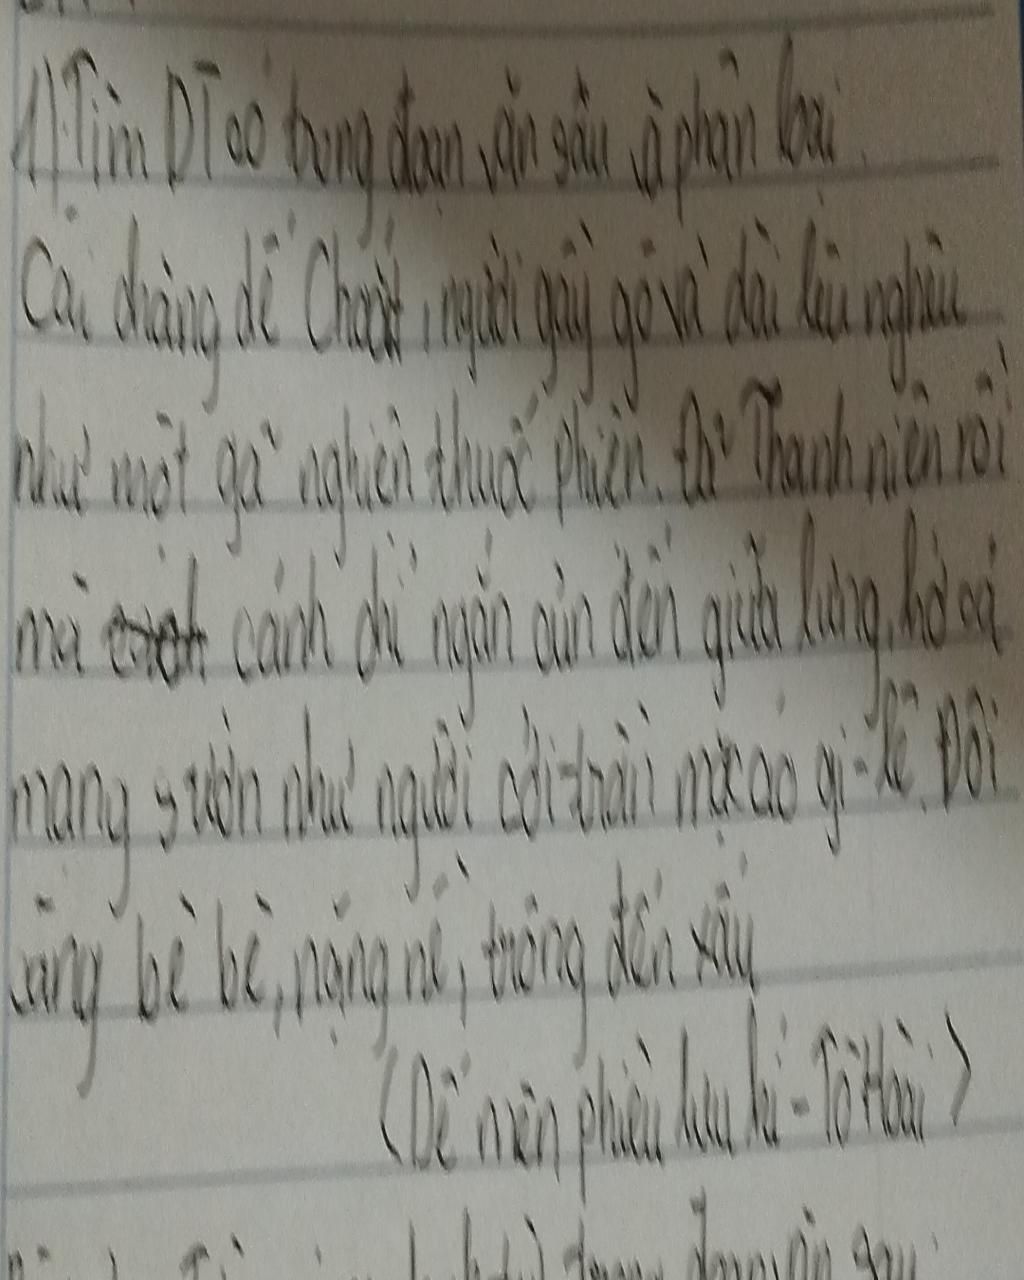 1) Tìm DT có trong đoạn văn sau và phân loại.
Cái chàng dế Choắt, người gầy gò và dài lêu nghêu
như một gã nghiện thuốc phiện. Đã Thanh niên rồi
mà cánh chỉ ngắn củn đến giữa lưng, hở cả
mạng sườn như người cởi-trần mặc áo gi-lê. Đôi
càng bè bè, nặng nề, trông đến xấu
(Dế mèn phiêu lưu kí - Tô Hoài)
đoạn văn sau